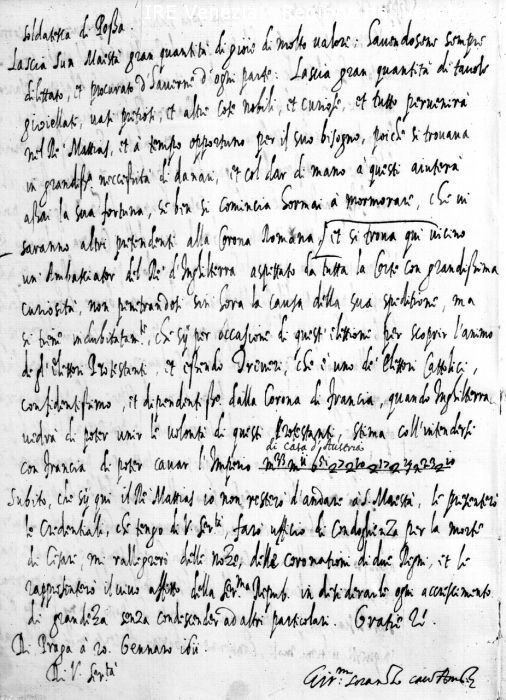 soldatesca di Possa.
Lascia Sua Maestà gran quantità di gioie di molto valore: havendosene sempre
dilettato, et procurato d'haverne d'ogni parte: Lascia gran quantità di tavole
gioiellate, vasi pretiosi, et altre cose nobili, et curiose, et tutto pervenirà
nel Rè Mattias, et à tempo opportuno per il suo bisogno, poiche si trovava
in grandiss.a necessità di danari, et col dar di mano à questi aiuterà
assai la sua fortuna, se ben si comincia hormai à mormorare, che vi
saranno altri pretendenti alla Corona Romana, et si trova qui vicino
un Ambasciator del Rè d'Inghilterra aspettato da tutta la Corte con grandissima
curiosità, non penetrandosi sin hora la causa della sua speditione, ma
si tiene indubitatam.te, che sij per occasione di questa elettione per scoprir l'animo
de gl'Elettori Protestanti, et essendo Treveri, che è uno de' Elettori Cattolici,
confidentissimo, et dipendente dalla Corona di Francia, quando Inghilterra
vedrà di poter unir le volontà di questi Protestanti, stima coll'intendersi
con Francia di poter cavar l'Imperio di casa d'Austria
Subito, che sij qui il Rè Mattias io non resterò d'andare à S. Maestà, le presenterò
le Credentiali, che tengo di V. Ser.tà, farò ufficio di Condoglienza per la morte
di Cesare, mi rallegrerò delle nozze, delle coronationi di due Regni, et le
rappresenterò il vivo affetto della Ser.ma Repub. in desiderarle ogni accrescimento
di grandezza senza condescender ad altri particolari. Gratie &.
Di Praga à 20. Gennaro 1611
Di V. Ser.tà